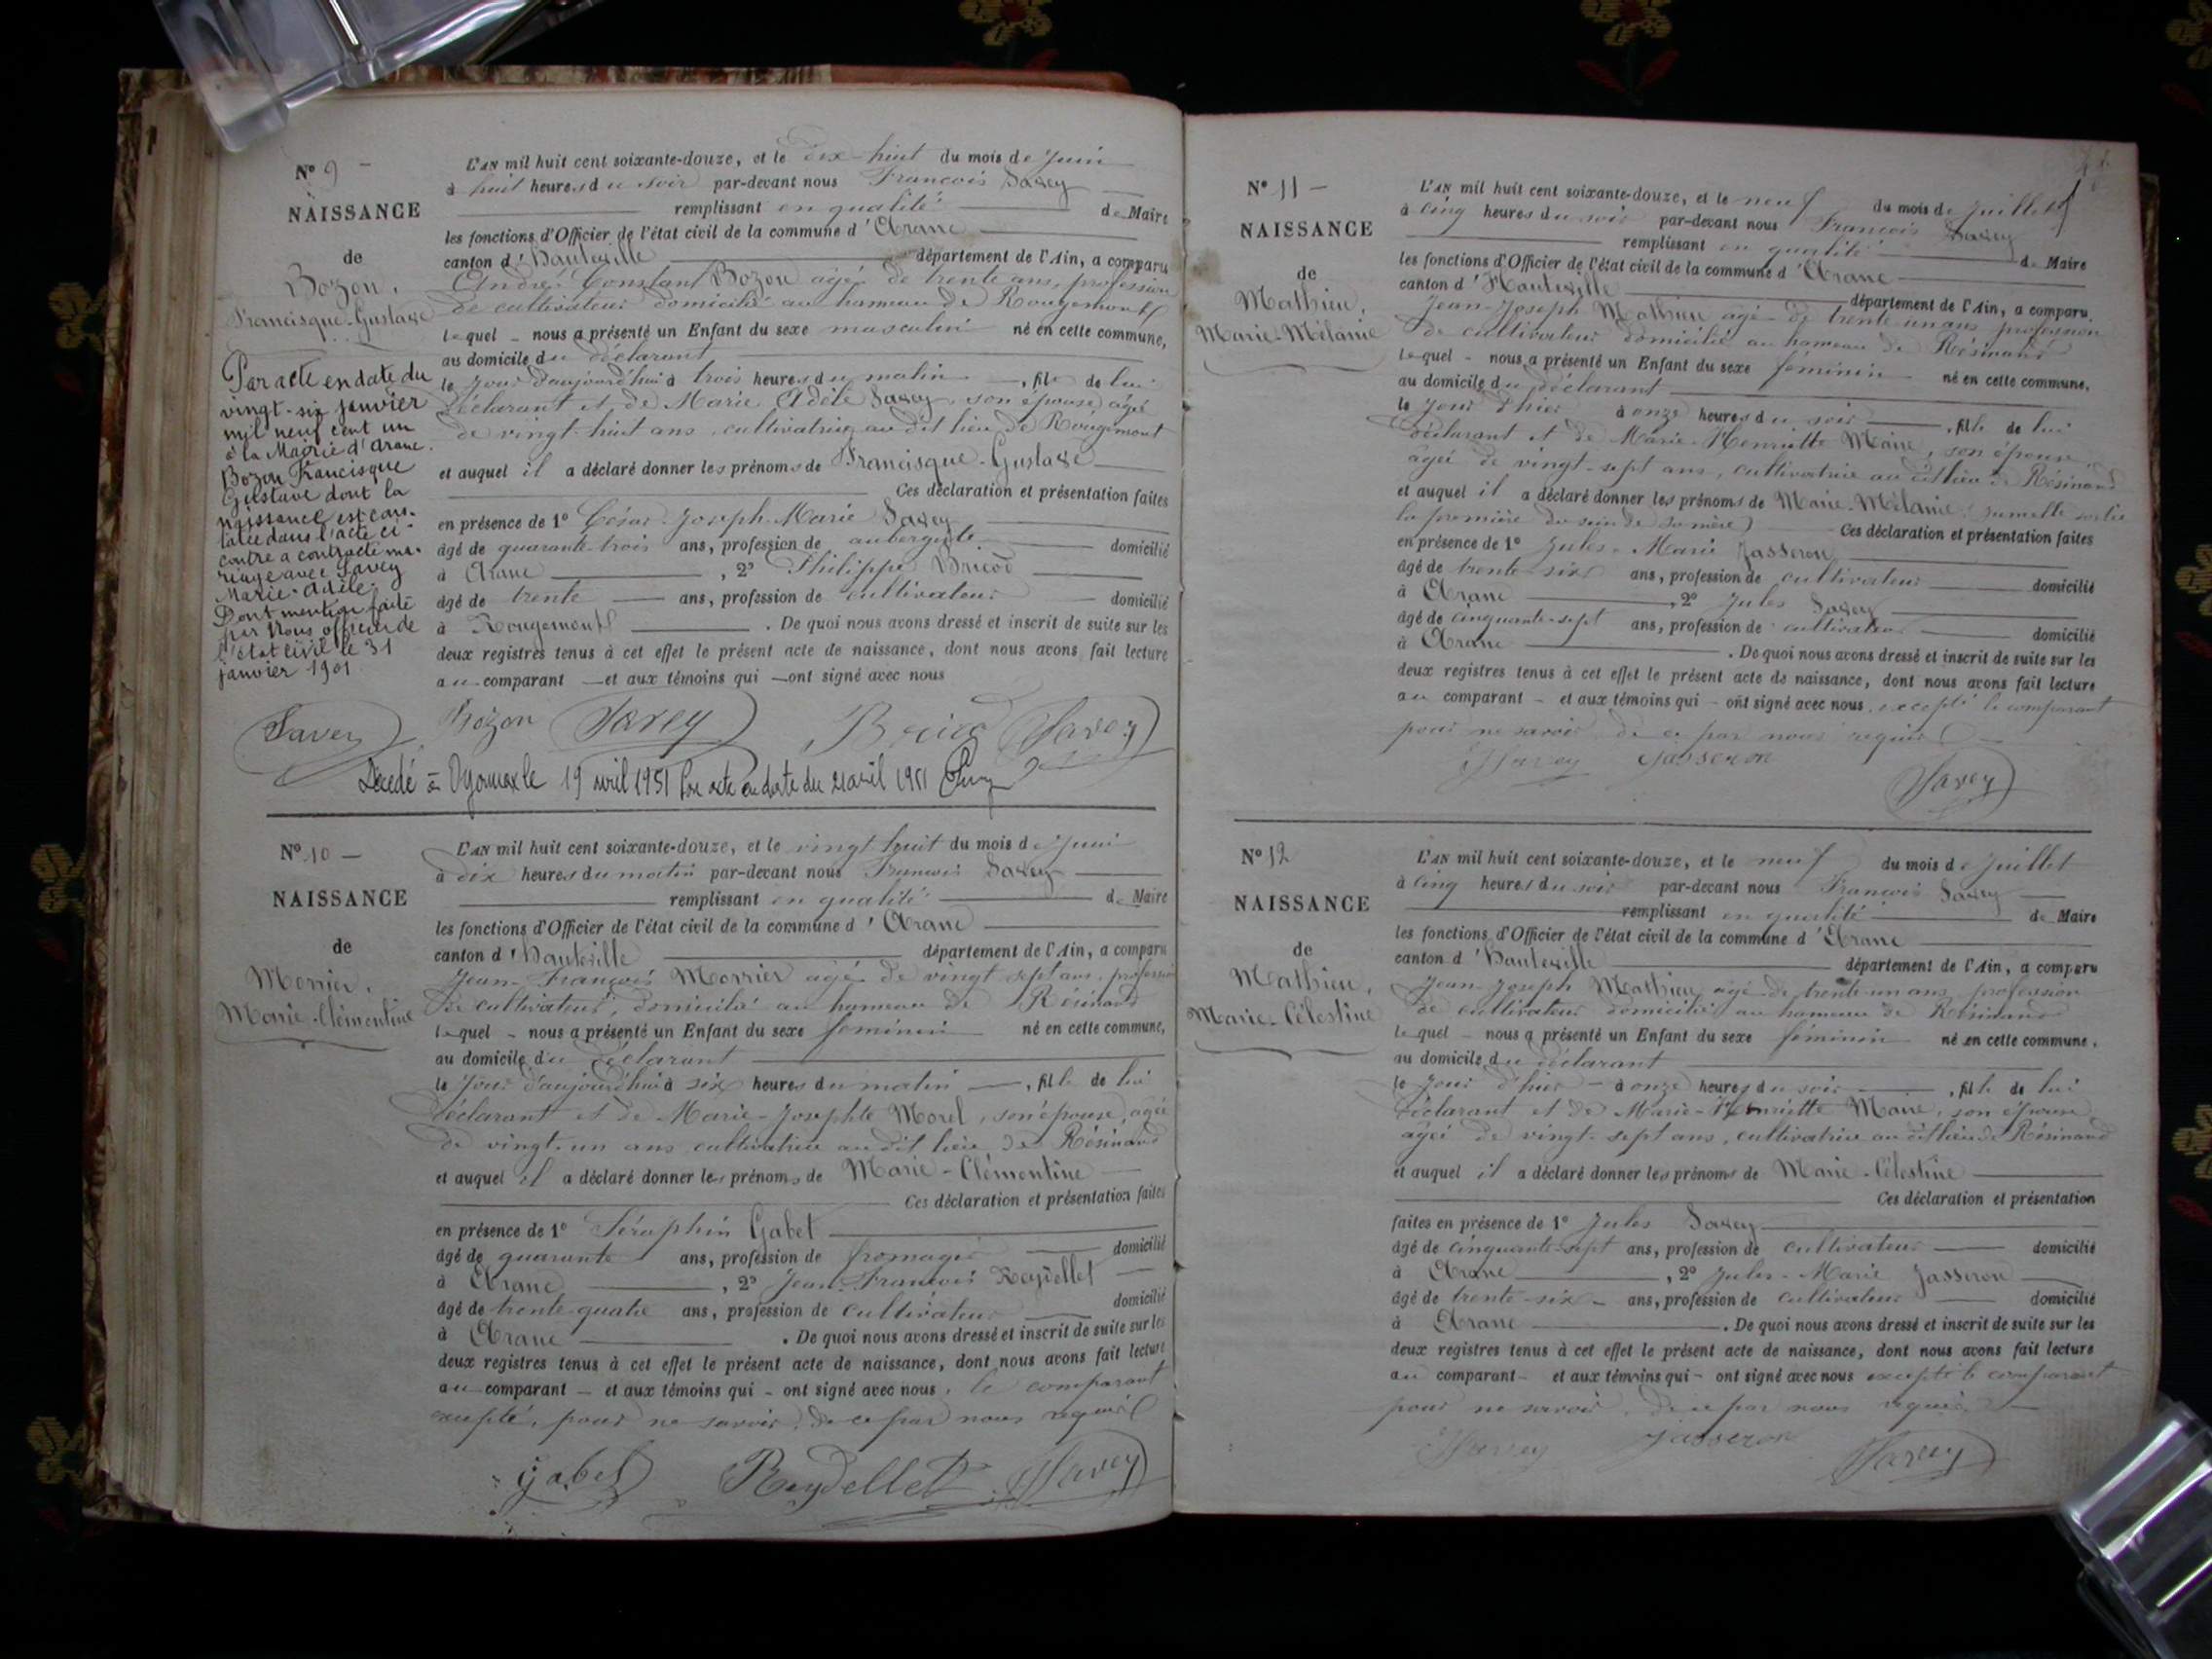 Nº 9 -
NAISSANCE
de
Bozon,
Francisque-Gustave
Par acte en date du
vingt-six janvier
mil neuf cent un
à la Mairie d'Aranc
Bozon Francisque
Gustave dont la
naissance est cons-
tatée dans l'acte ci-
contre a contracté ma-
riage avec Savey
Marie-Adèle.
Dont mention faite
par Nous officier de
l'état civil le 31
janvier 1901
L'AN mil huit cent soixante-douze, et le dix-huit du mois de Juin
à huit heures du soir par-devant nous François Savey
remplissant en qualité de Maire
les fonctions d'Officier de l'état civil de la commune d'Aranc
canton d'Hauteville département de l'Ain, a comparu
André Constant Bozon âgé de trente ans, profession
de cultivateur domicilié au hameau de Rougemont
lequel - nous a présenté un Enfant du sexe masculin né en cette commune,
au domicile du déclarant
le jour d'aujourd'hui à trois heures du matin, fils de lui
déclarant et de Marie Adèle Savey, son épouse, âgée
de vingt-huit ans, cultivatrice au dit lieu de Rougemont
et auquel il a déclaré donner les prénoms de Francisque-Gustave
Ces déclaration et présentation faites
en présence de 1º César-Joseph-Marie Savey
âgé de quarante-trois ans, profession de aubergiste domicilié
à Aranc, 2º Philippe Bricod
âgé de trente ans, profession de cultivateur domicilié
à Rougemont. De quoi nous avons dressé et inscrit de suite sur les
deux registres tenus à cet effet le présent acte de naissance, dont nous avons fait lecture
au comparant - et aux témoins qui - ont signé avec nous
Savey Bozon Savey Bricod Savey
Décédé à Oyonnax le 19 avril 1951 Par acte en date du 21 avril 1951
Nº 10 -
NAISSANCE
de
Morrier,
Marie-Clémentine
L'AN mil huit cent soixante-douze, et le vingt huit du mois de Juin
à dix heures du matin par-devant nous François Savey
remplissant en qualité de Maire
les fonctions d'Officier de l'état civil de la commune d'Aranc
canton d'Hauteville département de l'Ain, a comparu
Jean-François Morrier âgé de vingt sept ans, profession
de cultivateur, domicilié au hameau de Résinand
lequel - nous a présenté un Enfant du sexe féminin né en cette commune,
au domicile du déclarant
le jour d'aujourd'hui à six heures du matin, fille de lui
déclarant et de Marie-Josephte Morel, son épouse, âgée
de vingt-un ans, cultivatrice au dit lieu de Résinand
et auquel il a déclaré donner les prénoms de Marie-Clémentine
Ces déclaration et présentation faites
en présence de 1º Séraphin Gabet
âgé de quarante ans, profession de fromager domicilié
à Aranc, 2º Jean-François Reydellet
âgé de trente-quatre ans, profession de cultivateur domicilié
à Aranc. De quoi nous avons dressé et inscrit de suite sur les
deux registres tenus à cet effet le présent acte de naissance, dont nous avons fait lecture
au comparant - et aux témoins qui - ont signé avec nous, le comparant
excepté, pour ne savoir, de ce par nous requis
Gabet Reydellet Savey
Nº 11 -
NAISSANCE
de
Mathieu,
Marie-Mélanie
L'AN mil huit cent soixante-douze, et le neuf du mois de Juillet
à cinq heures du soir par-devant nous François Savey
remplissant en qualité de Maire
les fonctions d'Officier de l'état civil de la commune d'Aranc
canton d'Hauteville département de l'Ain, a comparu
Jean-Joseph Mathieu âgé de trente-un ans, profession
de cultivateur domicilié au hameau de Résinand
lequel - nous a présenté un Enfant du sexe féminin né en cette commune,
au domicile du déclarant
le jour d'hier à onze heures du soir, fille de lui
déclarant et de Marie-Henriette Maire, son épouse,
âgée de vingt-sept ans, cultivatrice au dit lieu de Résinand
et auquel il a déclaré donner les prénoms de Marie-Mélanie (jumelle sortie
la première du sein de sa mère) Ces déclaration et présentation faites
en présence de 1º Jules-Marie Jasseron
âgé de trente-six ans, profession de cultivateur domicilié
à Aranc, 2º Jules Savey
âgé de cinquante-sept ans, profession de cultivateur domicilié
à Aranc. De quoi nous avons dressé et inscrit de suite sur les
deux registres tenus à cet effet le présent acte de naissance, dont nous avons fait lecture
au comparant - et aux témoins qui - ont signé avec nous, excepté le comparant
pour ne savoir, de ce par nous requis
JSavey Jasseron Savey
Nº 12
NAISSANCE
de
Mathieu,
Marie-Célestine
L'AN mil huit cent soixante-douze, et le neuf du mois de Juillet
à cinq heures du soir par-devant nous François Savey
remplissant en qualité de Maire
les fonctions d'Officier de l'état civil de la commune d'Aranc
canton d'Hauteville département de l'Ain, a comparu
Jean-Joseph Mathieu âgé de trente-un ans, profession
de cultivateur domicilié au hameau de Résinand
lequel - nous a présenté un Enfant du sexe féminin né en cette commune,
au domicile du déclarant
le jour d'hier - à onze heures du soir, fille de lui
déclarant et de Marie-Henriette Maire, son épouse,
âgée de vingt-sept ans, cultivatrice au dit lieu de Résinand
et auquel il a déclaré donner les prénoms de Marie-Célestine
Ces déclaration et présentation
faites en présence de 1º Jules Savey
âgé de cinquante-sept ans, profession de cultivateur domicilié
à Aranc, 2º Jules-Marie Jasseron
âgé de trente-six - ans, profession de cultivateur domicilié
à Aranc. De quoi nous avons dressé et inscrit de suite sur les
deux registres tenus à cet effet le présent acte de naissance, dont nous avons fait lecture
au comparant - et aux témoins qui - ont signé avec nous excepté le comparant
pour ne savoir, de ce par nous requis.
JSavey Jasseron Savey